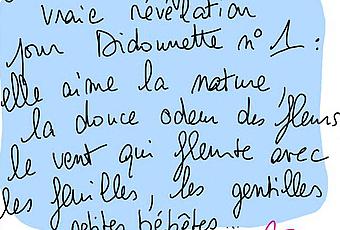 vraie révélation
pour Didounette n° 1 :
elle aime la nature,
la douce odeur des fleurs
le vent qui fleurte avec
les feuilles, les gentilles
petites bébêtes...